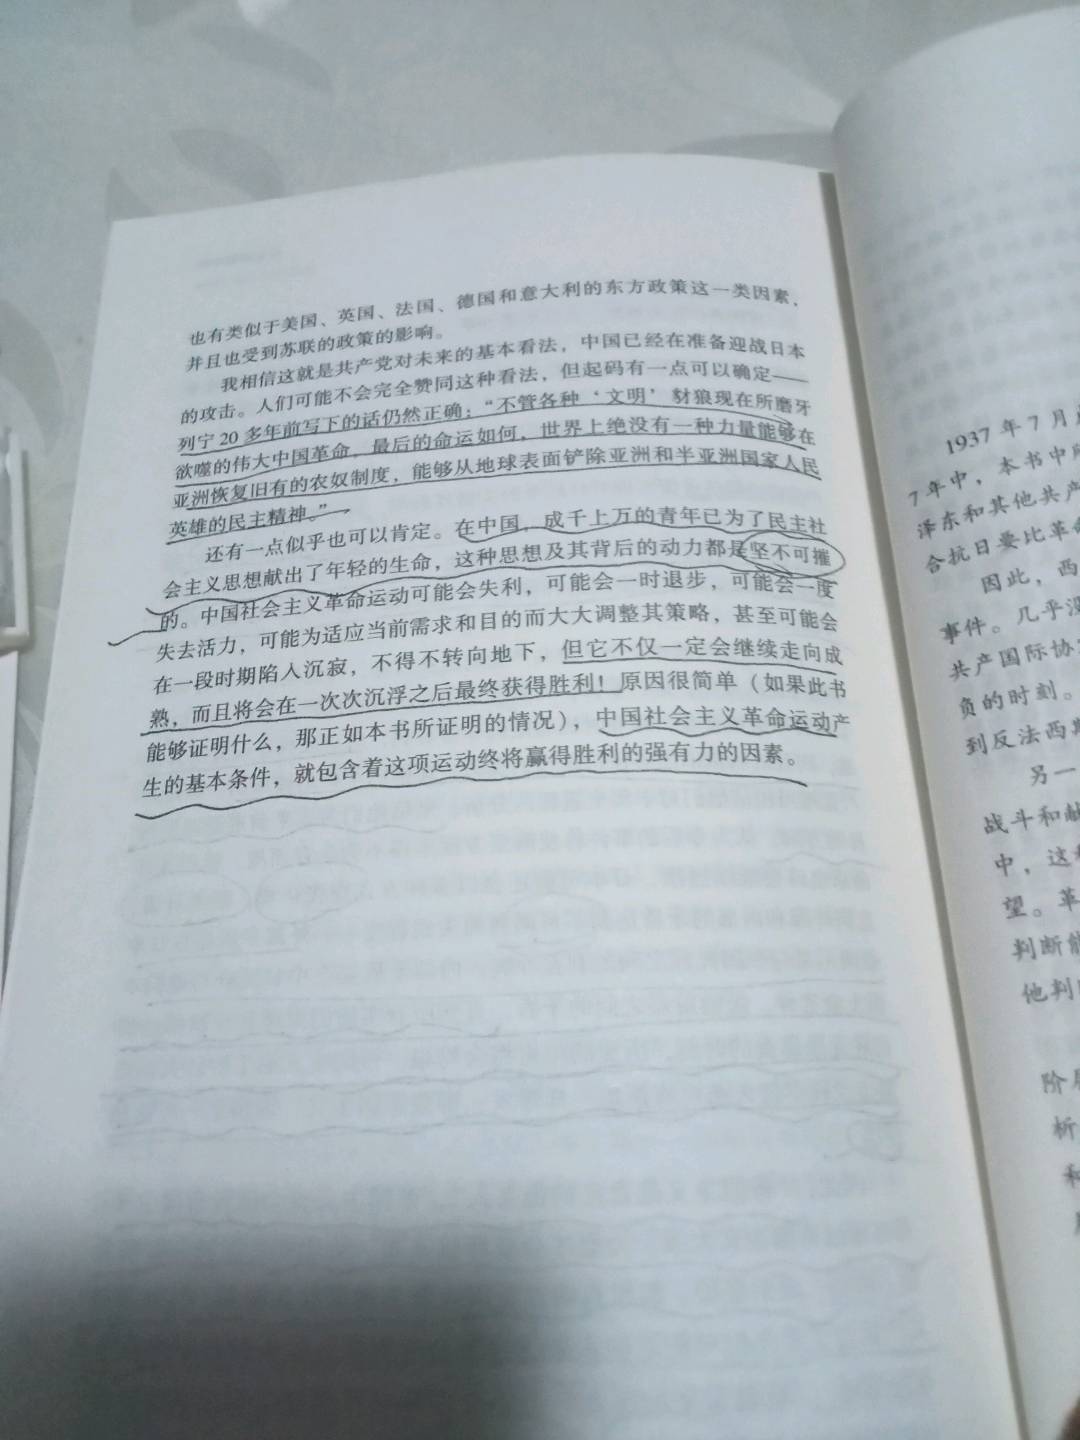 也有类似于美国、英国、法国、德国和意大利的东方政策这一类因素，
并且也受到苏联的政策的影响。
我相信这就是共产党对未来的基本看法，中国已经在准备迎战日本
的攻击。人们可能不会完全赞同这种看法，但起码有一点可以确定——
列宁 20 多年前写下的话仍然正确：“不管各种‘文明’豺狼现在所磨牙
欲噬的伟大中国革命，最后的命运如何，世界上绝没有一种力量能够在
亚洲恢复旧有的农奴制度，能够从地球表面铲除亚洲和半亚洲国家人民
英雄的民主精神。”
还有一点似乎也可以肯定。在中国，成千上万的青年已为了民主社
会主义思想献出了年轻的生命，这种思想及其背后的动力都是坚不可摧
的。中国社会主义革命运动可能会失利，可能会一时退步，可能会一度
失去活力，可能为适应当前需求和目的而大大调整其策略，甚至可能会
在一段时期陷入沉寂，不得不转向地下，但它不仅一定会继续走向成
熟，而且将会在一次次沉浮之后最终获得胜利！原因很简单（如果此书
能够证明什么，那正如本书所证明的情况），中国社会主义革命运动产
生的基本条件，就包含着这项运动终将赢得胜利的强有力的因素。
1937 年 7 月
7 年中，本书中
泽东和其他共产
合抗日要比革命
因此，西
事件。几乎没
共产国际协
负的时刻。
到反法西斯
另一
战斗和献
中，这
望。革
判断能
他判
阶
析
和